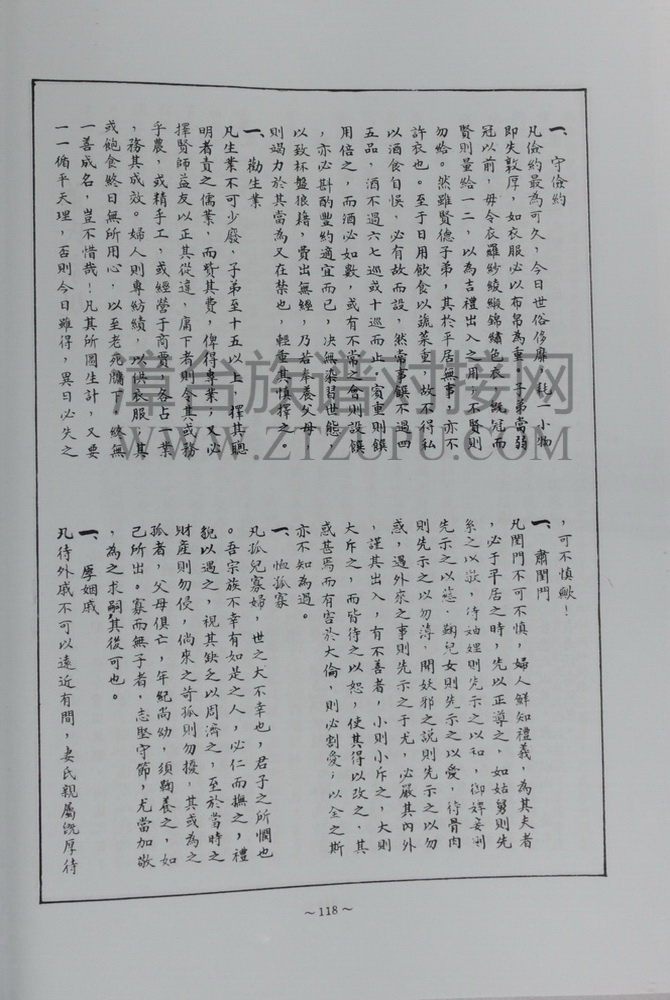 一、守儉約
凡儉約最為可久，今日世俗侈靡，耗一小物
即失敦厚，如衣服必以布帛為重。子弟當弱
冠以前，毋令衣羅紗綾緞錦繡色衣，既冠而
賢則量給一二，以為吉禮出入之用，不賢則
勿給。然雖賢德子弟，其於平居無事，亦不
許衣也。至于日用飲食以蔬菜重，故不得私
以酒食自娛，必有故而設，然常事饌不過四
五品，酒不過六七巡或十巡而止，賓重則饌
用倍之，而酒必如數，或有不常之會則設饌
，亦必斟酌豐約適宜而已，決無染習世態
以致杯盤狼藉，費出無經，乃若奉養父母
則竭力於其當為又在禁也，輕重其慎擇之。
一、勸生業
凡生業不可少廢，子弟至十五以上，擇其聰
明者責之儒業，而資其費，俾得專業；又必
擇賢師益友以正其從違，庸下者則令其或務
乎農，或精手工，或經營于商賈，各占一業
，務其成效。婦人則專紡績，以供衣服，其
或飽食終日無所用心，以至老死牖下，終無
一善成名，豈不惜哉！凡其所圖生計，又要
一一循乎天理，否則今日雖得，異日必失之
，可不慎歟！
一、肅閨門
凡閨門不可不慎，婦人鮮知禮義，為其夫者
，必于平居之時，先以正導之，如姑舅則先
示之以敬，待妯娌則先示之以和，御婢妾則
先示之以慈，鞠兒女則先示之以愛，待骨肉
則先示之以勿薄，聞妖邪之說則先示之以勿
惑，遇外來之事則先示之于尤，必嚴其內外
，謹其出入，有不善者，小則小斥之，大則
大斥之，而皆待之以恕，使其得以改之，其
或甚焉而有害於大倫，則必割愛；以全之斯
亦不知為過。
一、恤孤寡
凡孤兒寡婦，世之大不幸也，君子之所憫也
。吾宗族不幸有如是之人，必仁而撫之，禮
貌以遇之，視其缺乏以周濟之，至於當時之
財產則勿侵，倘來之苛孤則勿擾，其或為之
孤者，父母俱亡，年紀尚幼，須鞠養之，如
己所出。寡而無子者，志堅守節，尤當加敬
，為之求嗣其後可也。
一、厚姻戚
凡待外戚不可以遠近有間，妻氏親屬既厚待
～118～
漳台族谱对接网
WWW.ZTZUPU.COM